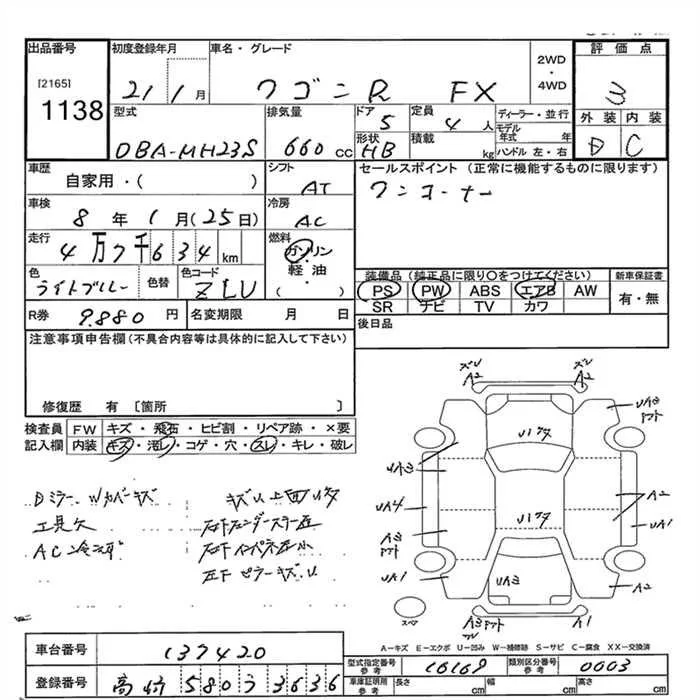 出品番号
[2165]
1138
初度登録年月
21 1月
車名・グレード
ワゴンR FX
2WD
・
4WD
評価点
3
外装 内装
D C
型式
DBA-MH23S
排気量
660 cc
ドア
5
定員
4人
ディーラー・並行
モデル年式 年
形状
HB
積載
kg
ハンドル 左・右
車歴
自家用・( )
シフト
AT
車検
8年1月(25日)
冷房
AC
走行
4万7千634km
燃料
ガソリン
・
軽油
・
( )
色
ライトブルー
色替
色コード
ZLU
R券
9.880円
名変期限 月 日
セールスポイント(正常に機能するものに限ります)
ワンオーナー
装備品(純正品に限り○をつけてください)
新車保証書
PS PW ABS エアB AW
有・無
SR ナビ TV カワ
後日品
注意事項申告欄(不具合内容等は具体的に記入して下さい)
修復歴 有[箇所 ]
検査員記入欄
FW キズ・飛石・ヒビ割・リペア跡・×要
内装 キズ・汚レ・コゲ・穴・スレ・キレ・破レ
Dミラー Wカバーキズ
工具欠
スレ
A2
ズレ
A2
U17A
UA3
A2
UA4
A2
UA1
U17A
A3
UA1
UA3
A2
スペア
A3
A1
A-キズ E-エクボ U-凹み W-補修跡 S-サビ C-腐食 XX-交換済
車台番号
137420
登録番号
高崎580ワ3636
型式指定番号
参考
16169
類別区分番号
参考
0003
車庫証明用
参考
長さ cm
幅 cm
高さ cm